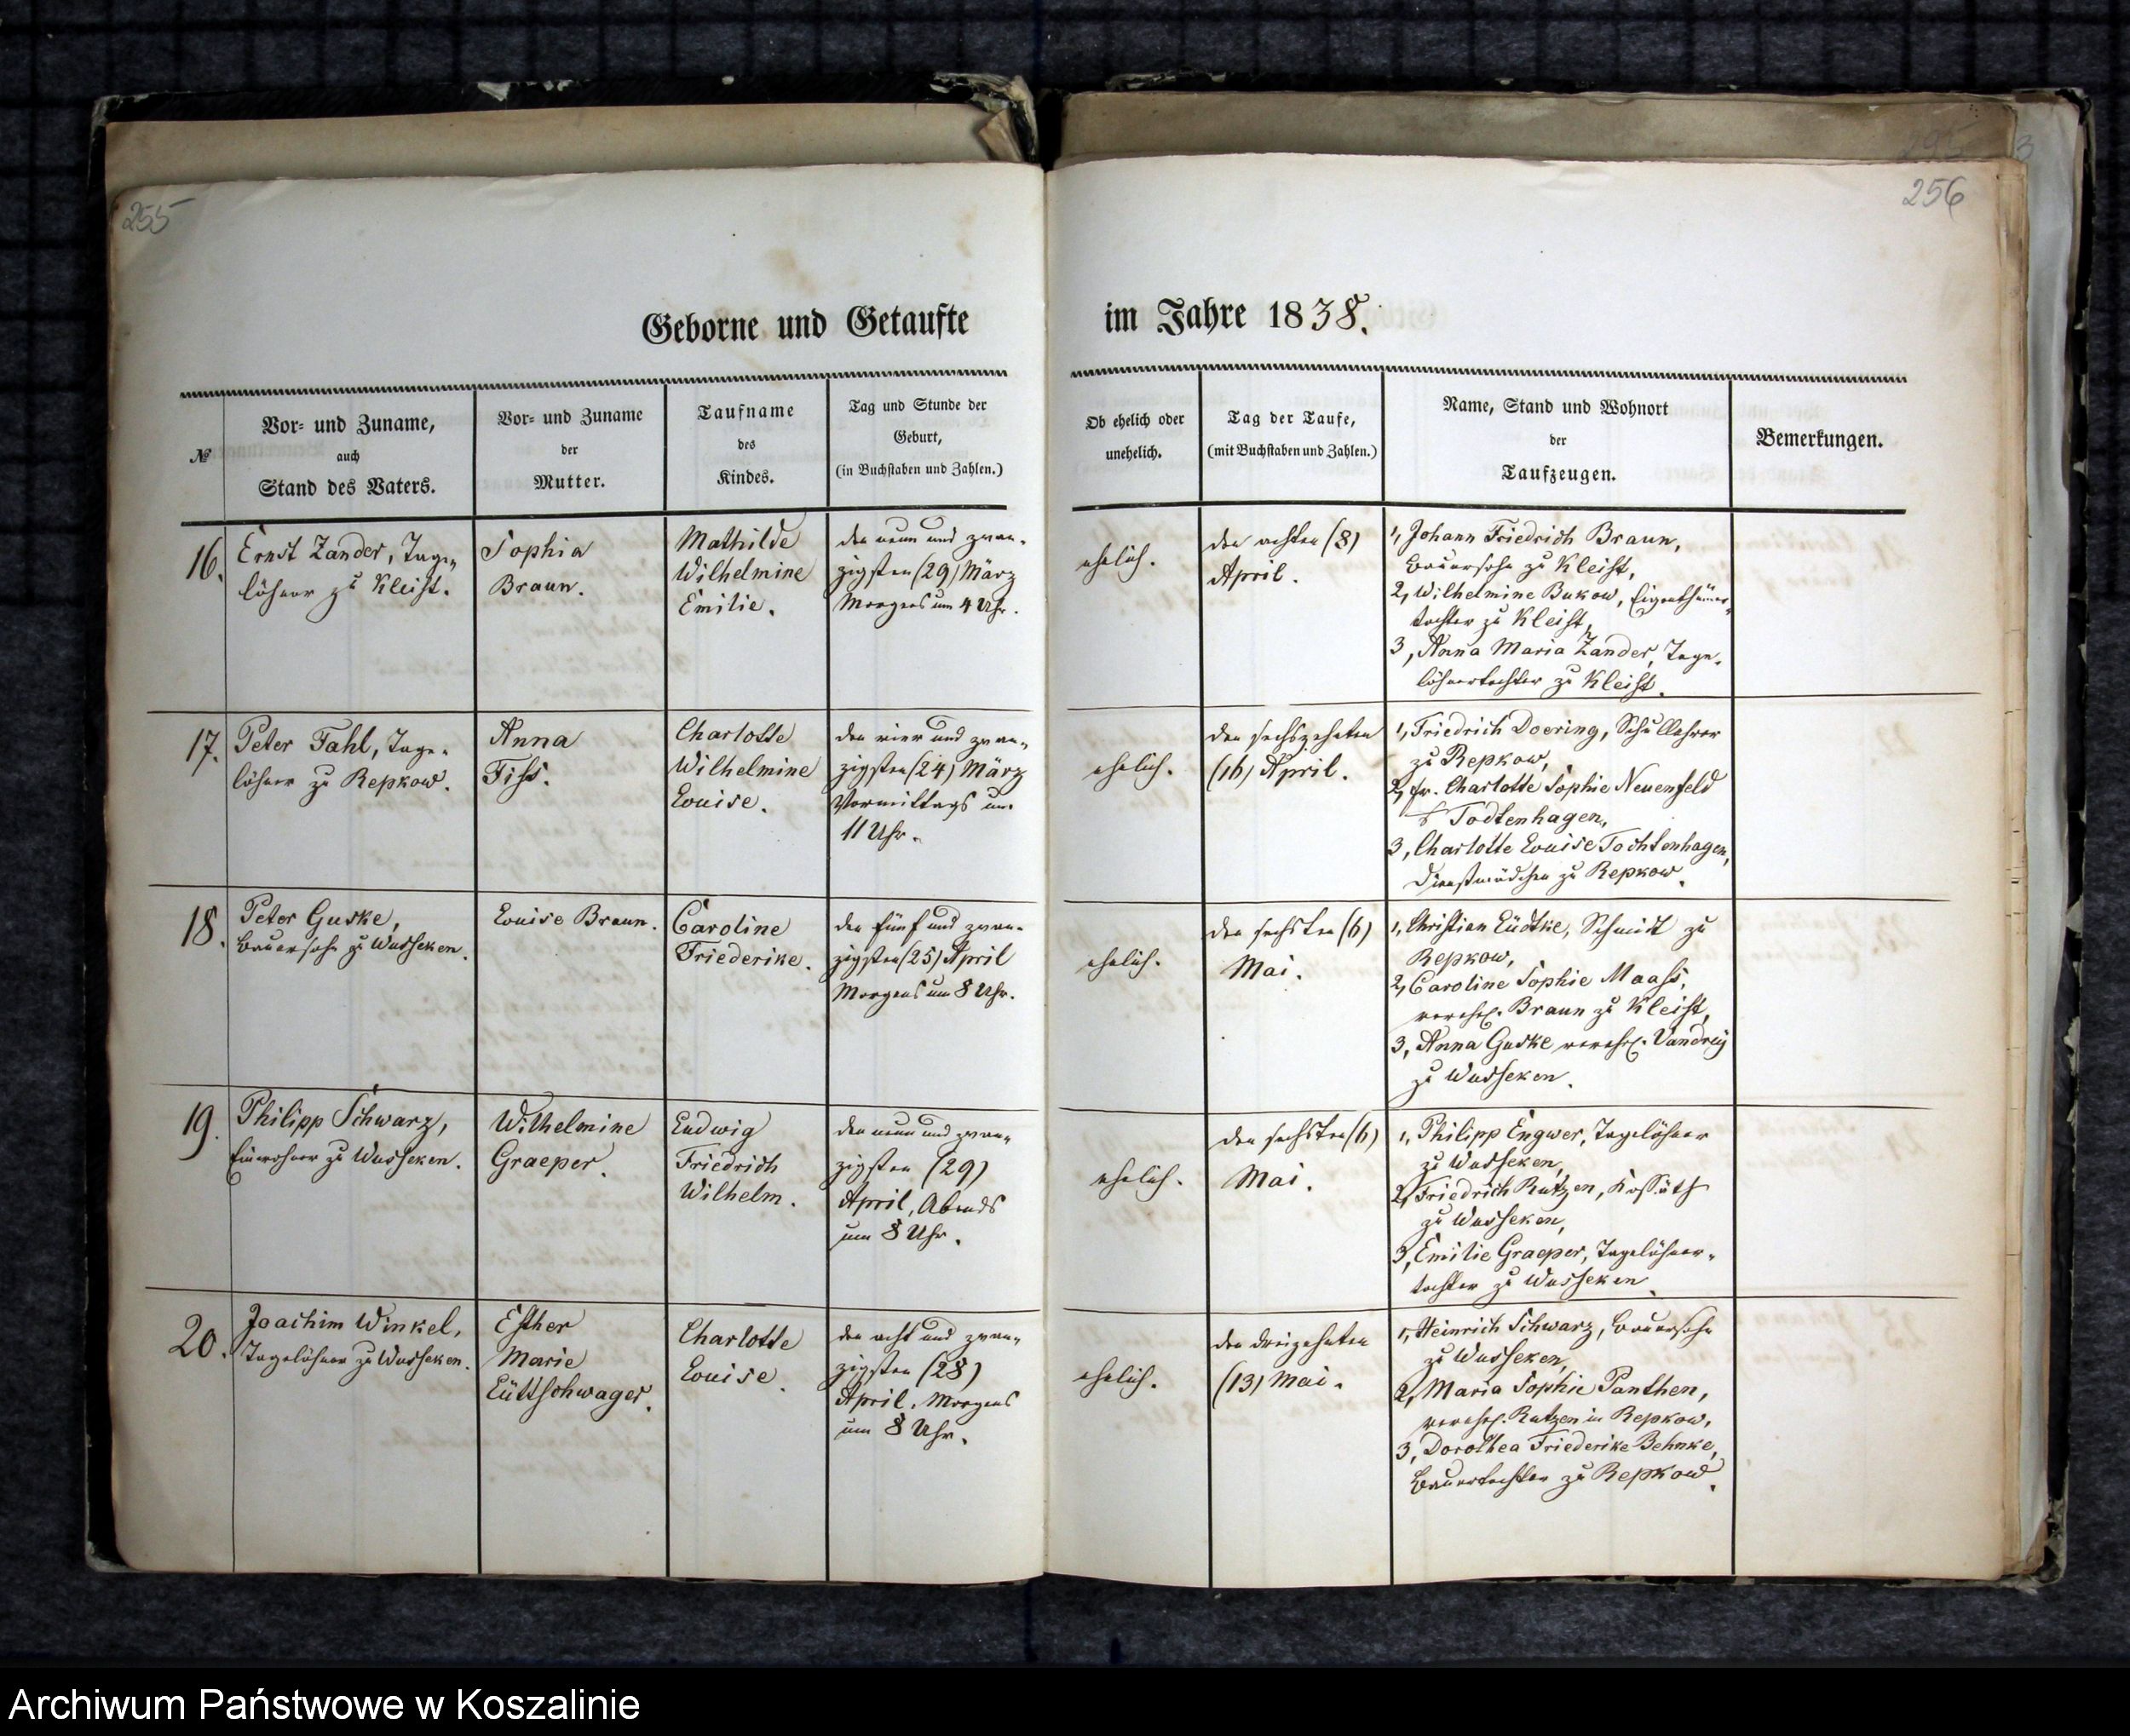 255
256
Geborne und Getaufte
im Jahre 1838.
№
Vor- und Zuname,
auch
Stand des Vaters.
Vor- und Zuname
der
Mutter.
Taufname
des
Kindes.
Tag und Stunde der
Geburt,
(in Buchstaben und Zahlen.)
Ob ehelich oder
unehelich.
Tag der Taufe,
(mit Buchstaben und Zahlen.)
Name, Stand und Wohnort
der
Taufzeugen.
Bemerkungen.
16.
Ernst Zander, Tage-
löhner zu Kleist.
Sophia
Braun.
Mathilde
Wilhelmine
Emilie.
den neun und zwan-
zigsten (29) März
Morgens um 4 Uhr.
ehelich.
den achten (8)
April.
1, Johann Friedrich Braun,
Bauersohn zu Kleist,
2, Wilhelmine Bukow, Eigenthümer-
tochter zu Kleist,
3, Anna Maria Zander, Tage-
löhnertochter zu Kleist.
17.
Peter Fahl, Tage-
löhner zu Repkow.
Anna
Fiss.
Charlotte
Wilhelmine
Louise.
den vier und zwan-
zigsten (24) März
Vormittags um
11 Uhr.
ehelich.
den sechszehnten
(16) April.
1, Friedrich Doering, Schullehrer
zu Repkow,
2, fr. Charlotte Sophie Neuenfeld
Todtenhagen,
3, Charlotte Louise Tochtenhagen,
Dienstmädchen zu Repkow.
18.
Peter Guske,
Bauersohn zu Wusseken.
Louise Braun.
Caroline
Friederike.
den fünf und zwan-
zigsten (25) April
Morgens um 8 Uhr.
ehelich.
den sechsten (6)
Mai.
1, Christian Lüdtke, Schmidt zu
Repkow,
2, Caroline Sophie Maass,
verehel. Braun zu Kleist,
3, Anna Guske verehel. Vandreÿ
zu Wusseken.
19.
Philipp Schwarz,
Einwohner zu Wusseken.
Wilhelmine
Graeper.
Ludwig
Friedrich
Wilhelm.
den neun und zwan-
zigsten (29)
April, Abends
um 8 Uhr.
ehelich.
den sechsten (6)
Mai.
1, Philipp Engwer, Tagelöhner
zu Wusseken,
2, Friedrich Rutzen, Kossäth
zu Wusseken,
3, Emilie Graeper, Tagelöhner-
tochter zu Wusseken.
20.
Joachim Winkel,
Tagelöhner zu Wusseken.
Esther
Marie
Lüttschwager.
Charlotte
Louise.
den acht und zwan-
zigsten (28)
April, Morgens
um 8 Uhr.
ehelich.
den dreizehnten
(13) Mai.
1, Heinrich Schwarz, Bauersohn
zu Wusseken,
2, Maria Sophie Panthen,
verehel. Rutzen in Repkow,
3, Dorothea Friederike Behnke,
Bauertochter zu Repkow.
Archiwum Państwowe w Koszalinie